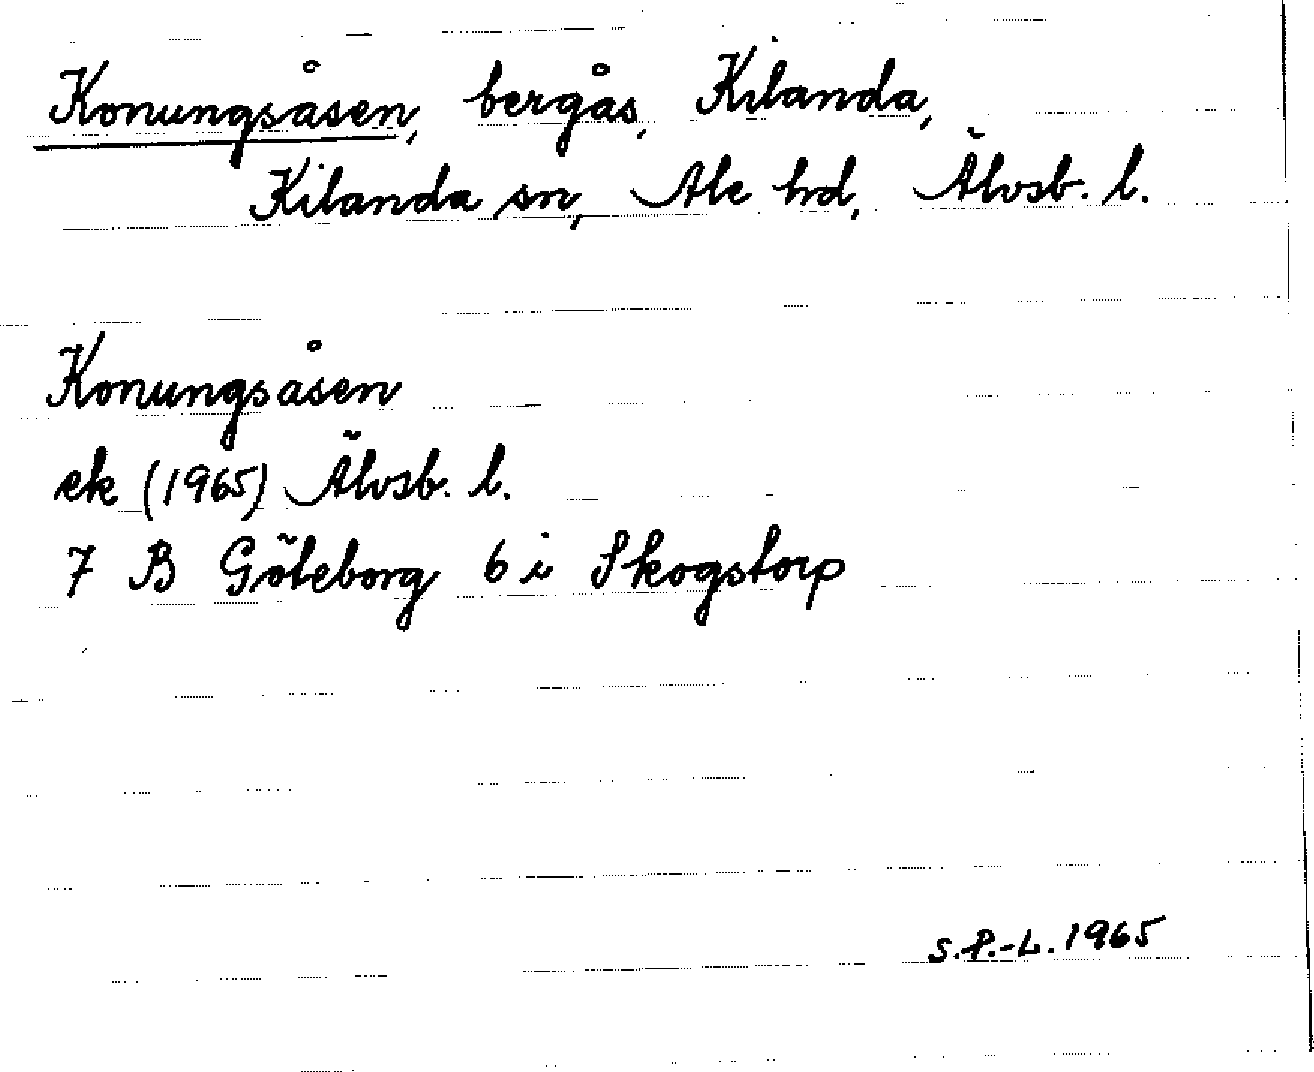 Konungsåsen, bergås, Kilanda,
Kilanda sn, Ale hrd, Älvsb. l.
Konungsåsen
ek (1965) Älvsb. l.
7 B Göteborg 6 i Skogstorp
S.P.-L. 1965